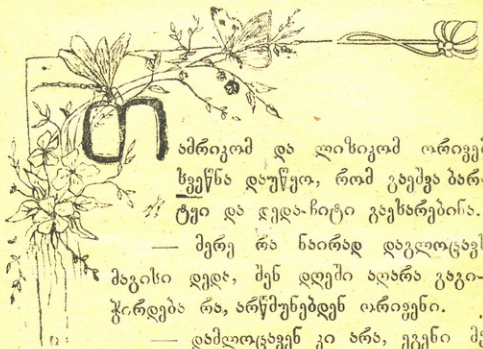 თამრიკომ და ლიზიკომ ორივემ
ხვეწნა დაუწყო, რომ გაეშვა ბარ-
ტყი და დედა-ჩიტი გაეხარებინა.
— მერე რა ნაირად დაგლოცავს
მაგისი დედა, შენ დღეში აღარა გაგი-
ჭირდება რა, არწმუნებდენ ორივენი.
— დამლოცავენ კი არა, ეგენი მე